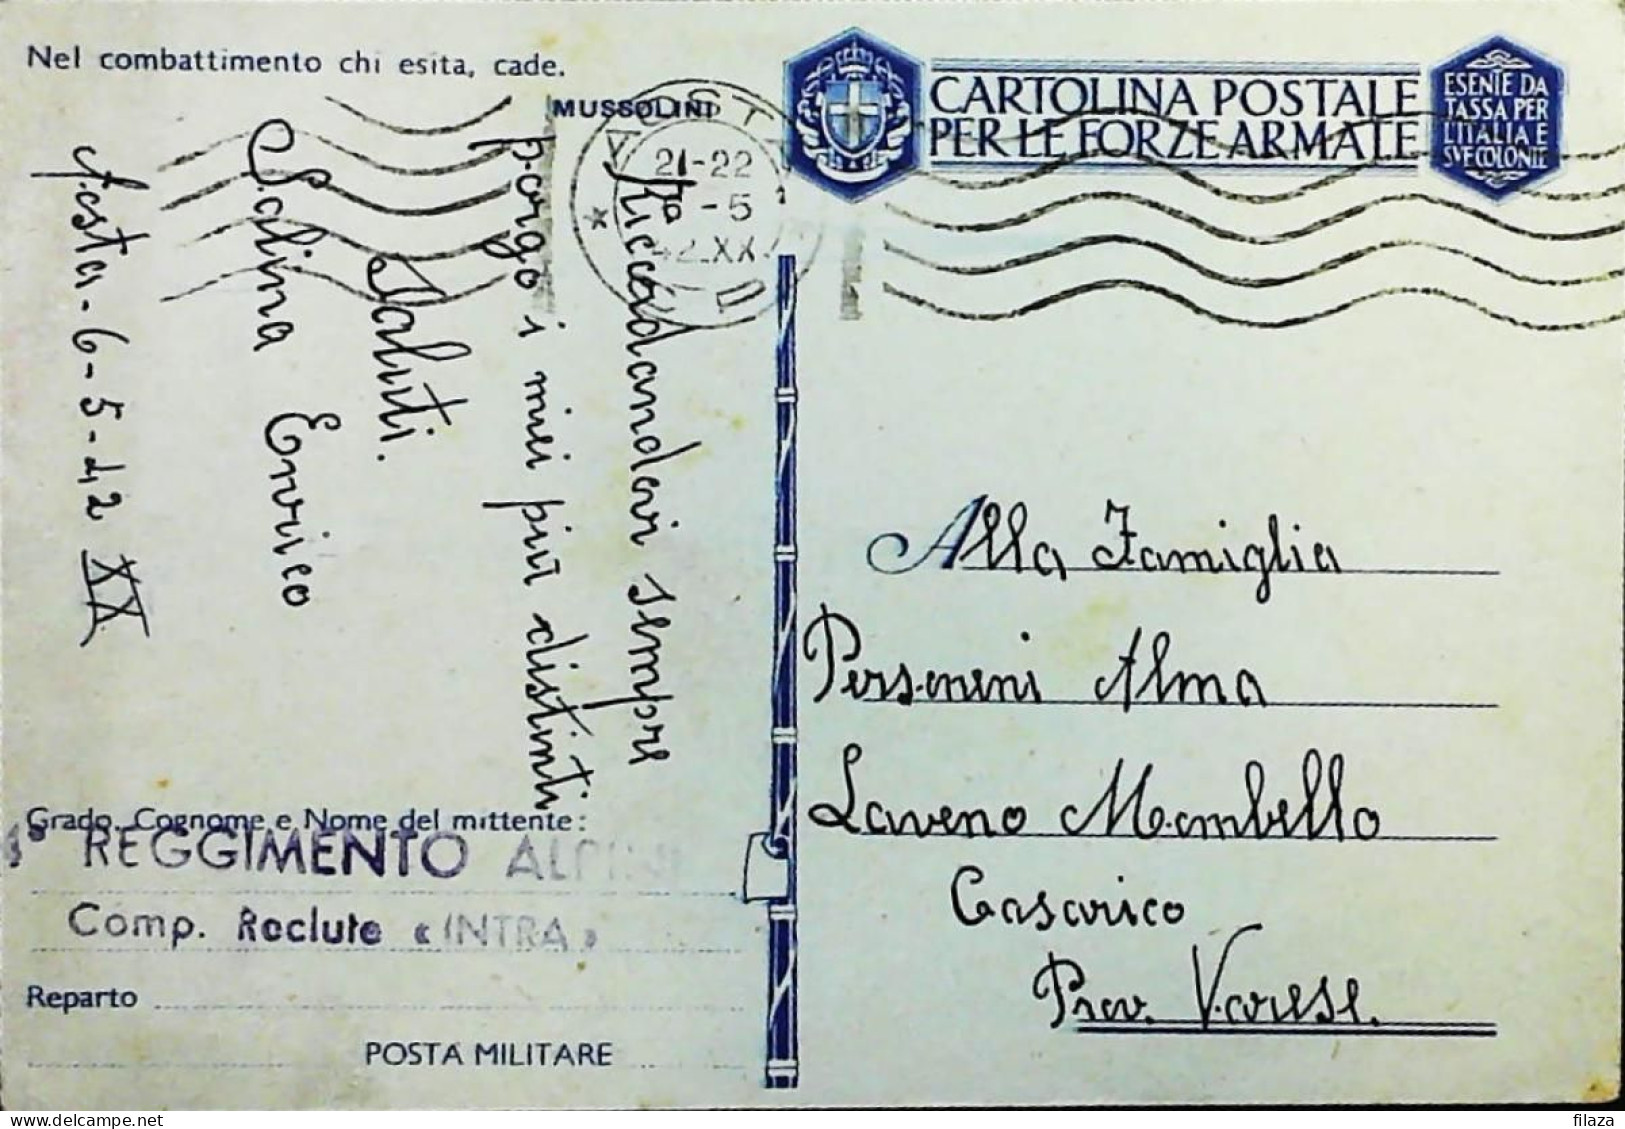 Nel combattimento chi esita, cade.
MUSSOLINI
CARTOLINA POSTALE
PER LE FORZE ARMATE
ESENTE DA
TASSA PER
L'ITALIA E
SVE COLONIE
AOSTA
21-22
-5
42.XX
Ricordandovi sempre
porgo i miei più distinti
Saluti.
Salina Enrico
Aosta-6-5-42 XX
Alla Famiglia
Perseneni Alma
Laveno Mombello
Casarico
Prov. Varese.
Grado, Cognome e Nome del mittente:
4° REGGIMENTO ALPINI
Comp. Reclute « INTRA »
Reparto
POSTA MILITARE
filaza